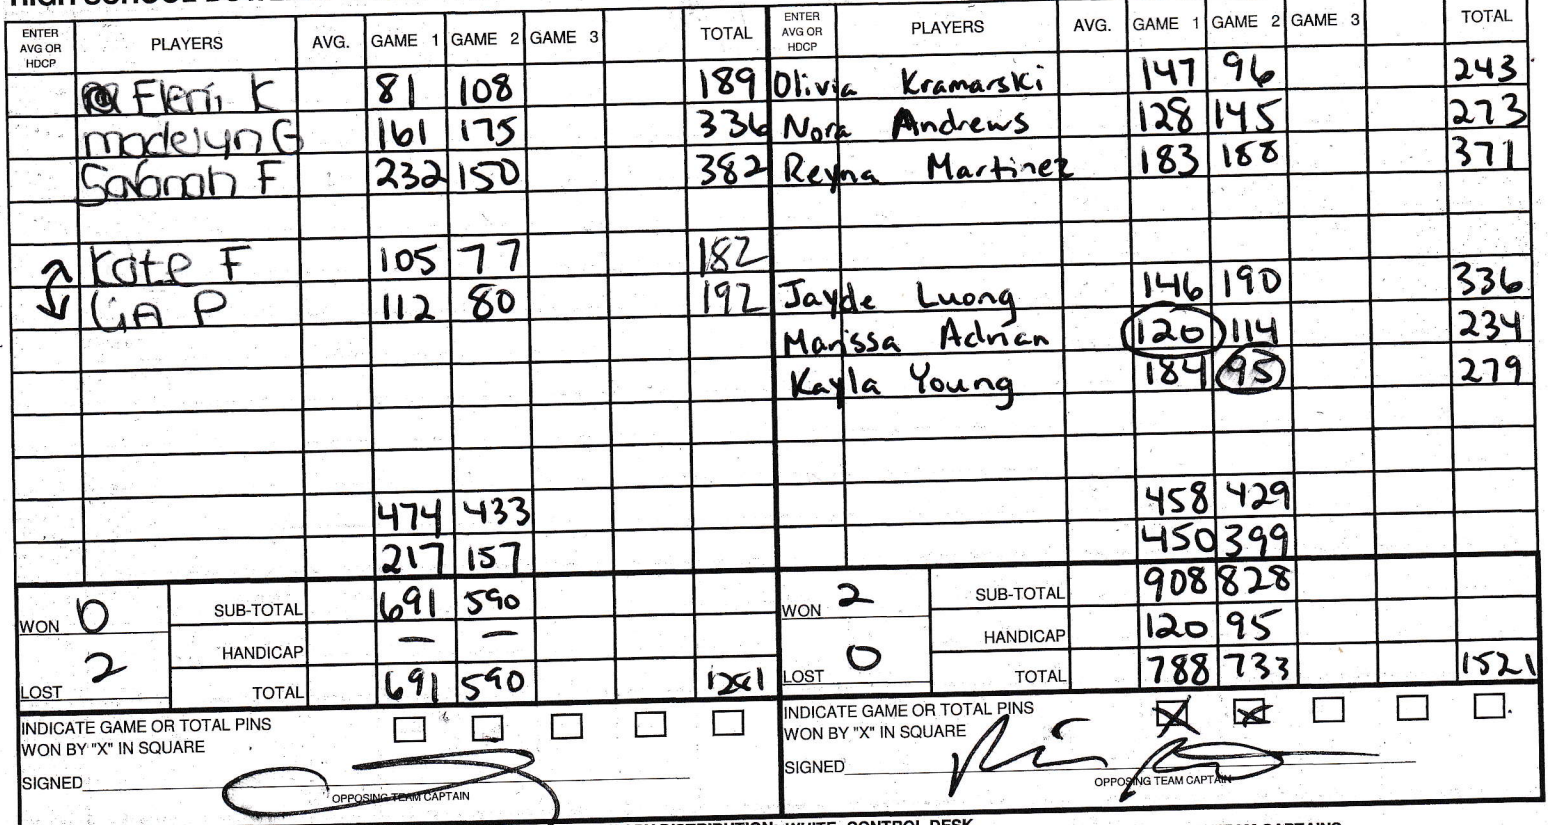 ENTER AVG OR HDCP PLAYERS AVG. GAME 1 GAME 2 GAME 3 TOTAL
K 81 108 189
madelyn G 161 175 336
Savanah F 232 150 382
Kate F 105 77 182
LiA P 112 80 192
474 433
217 157
WON 0 SUB-TOTAL 691 590
HANDICAP — —
LOST 2 TOTAL 691 590 1281
INDICATE GAME OR TOTAL PINS
WON BY "X" IN SQUARE
SIGNED
OPPOSING TEAM CAPTAIN
ENTER AVG OR HDCP PLAYERS AVG. GAME 1 GAME 2 GAME 3 TOTAL
Olivia Kramarski 147 96 243
Nora Andrews 128 145 273
Reyna Martinez 183 188 371
Jayde Luong 146 190 336
Marissa Adrian 120 114 234
Kayla Young 184 95 279
458 429
450 399
WON 2 SUB-TOTAL 908 828
HANDICAP 120 95
LOST 0 TOTAL 788 733 1521
INDICATE GAME OR TOTAL PINS
WON BY "X" IN SQUARE X X
SIGNED
OPPOSING TEAM CAPTAIN